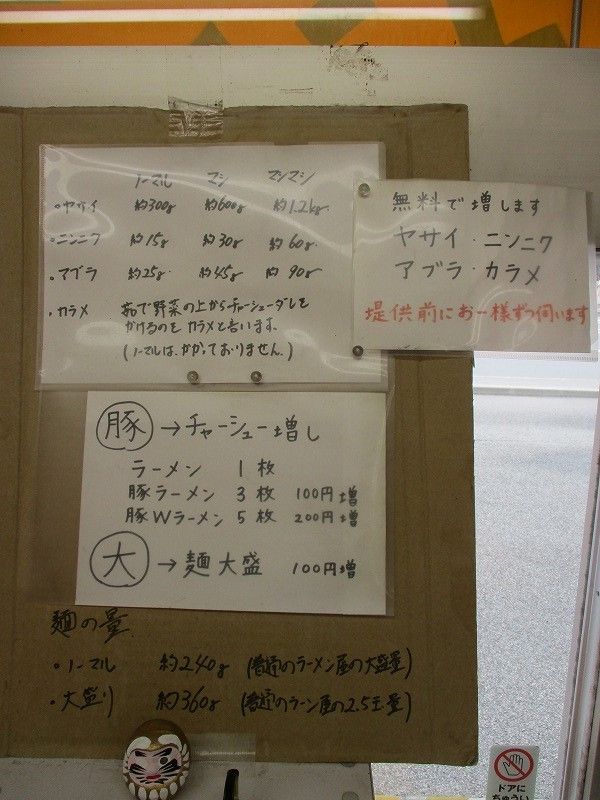 ノーマル マシ マシマシ
・ヤサイ 約300g 約600g 約1.2kg
・ニンニク 約15g 約30g 約60g
・アブラ 約25g 約45g 約90g
・カラメ 茹で野菜の上からチャーシューダレを
かけるのをカラメと言います。
(ノーマルは、かかっておりません。)
無料で増します
ヤサイ・ニンニク
アブラ・カラメ
提供前にお一様ずつ伺います
豚→チャーシュー増し
ラーメン 1枚
豚ラーメン 3枚 100円増
豚Wラーメン 5枚 200円増
大→麺大盛 100円増
麺の量
・ノーマル 約240g (普通のラーメン屋の大盛量)
・大盛り 約360g (普通のラーメン屋の2.5玉量)
ドアに
ちゅうい